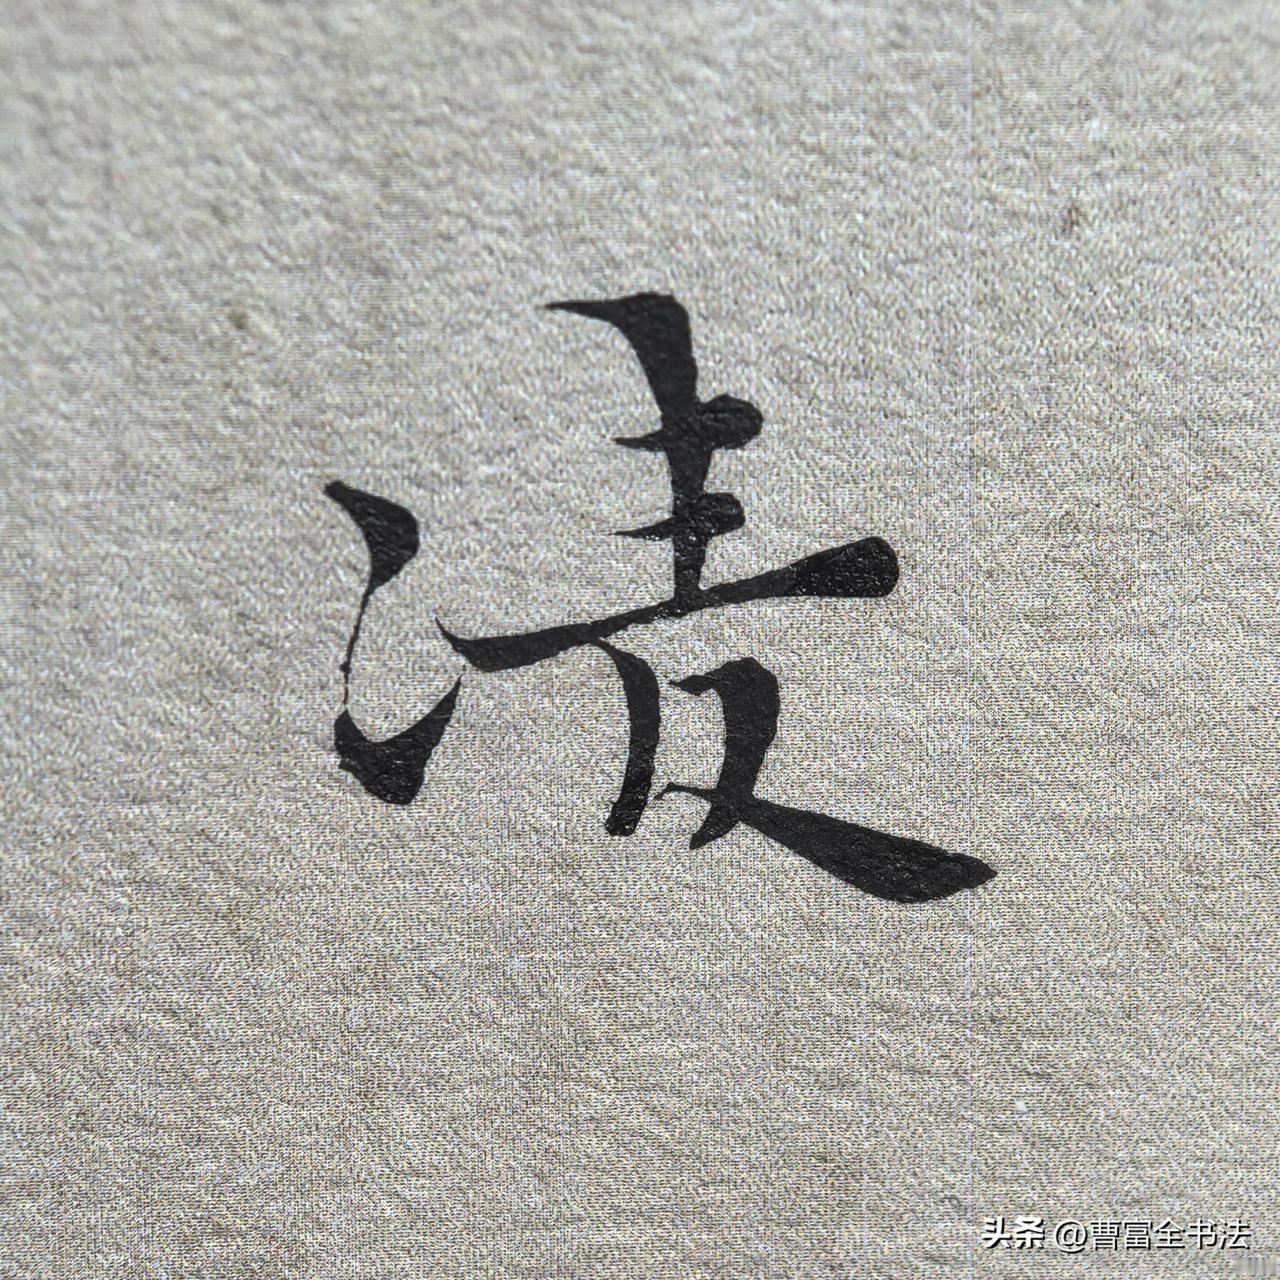 凌
头条 @曹富全书法